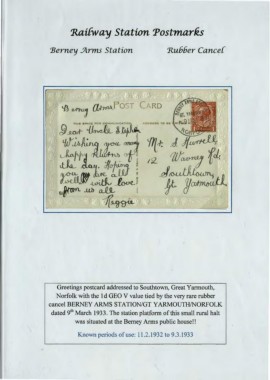 Railway Station Postmarks
Berney Arms Station Rubber Cancel
Berny Arms
POST CARD
Dear Uncle Stephen
Wishing you many
happy Returns of
the day. Hoping
you are all
well with love
from us all
Reggie
Mr S Murrell
12 Waveney Rd
Southtown
Gt Yarmouth
Greetings postcard addressed to Southtown, Great Yarmouth,
Norfolk with the 1d GEO V value tied by the very rare rubber
cancel BERNEY ARMS STATION/GT YARMOUTH/NORFOLK
dated 9th March 1933. The station platform of this small rural halt
was situated at the Berney Arms public house!!
Known periods of use: 11.2.1932 to 9.3.1933